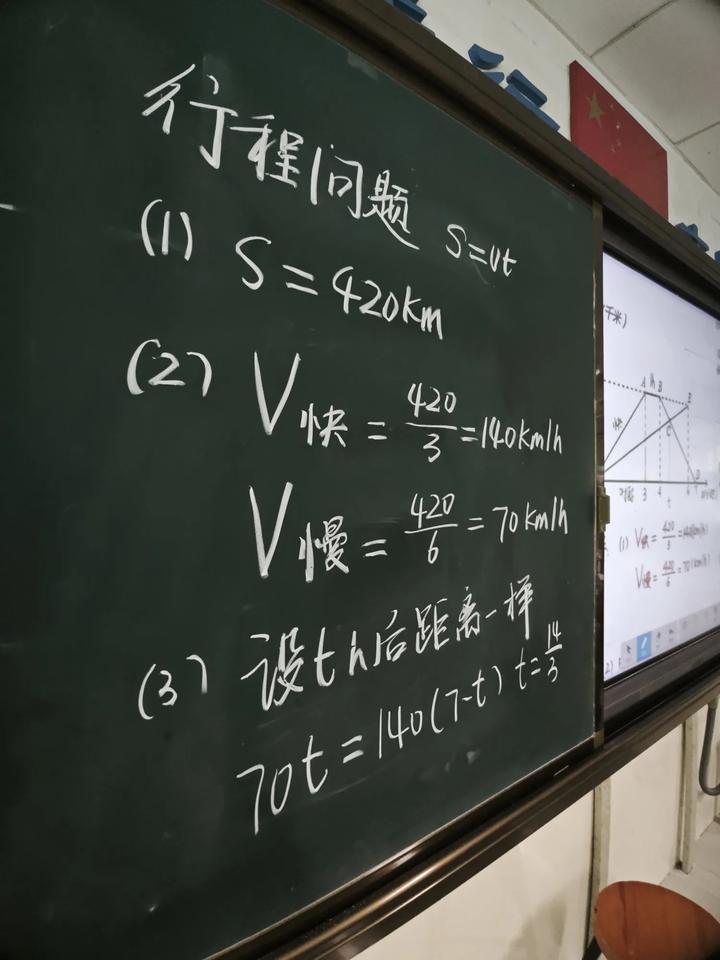 行程问题 S=vt
(1) S=420km
(2) V快=420/3=140km/h
V慢=420/6=70km/h
(3) 设th后距离一样
70t=140(7-t) t=14/3
千米)
A h B E
快
C
3 4 t
(1) V快=420/3
V慢=420/6